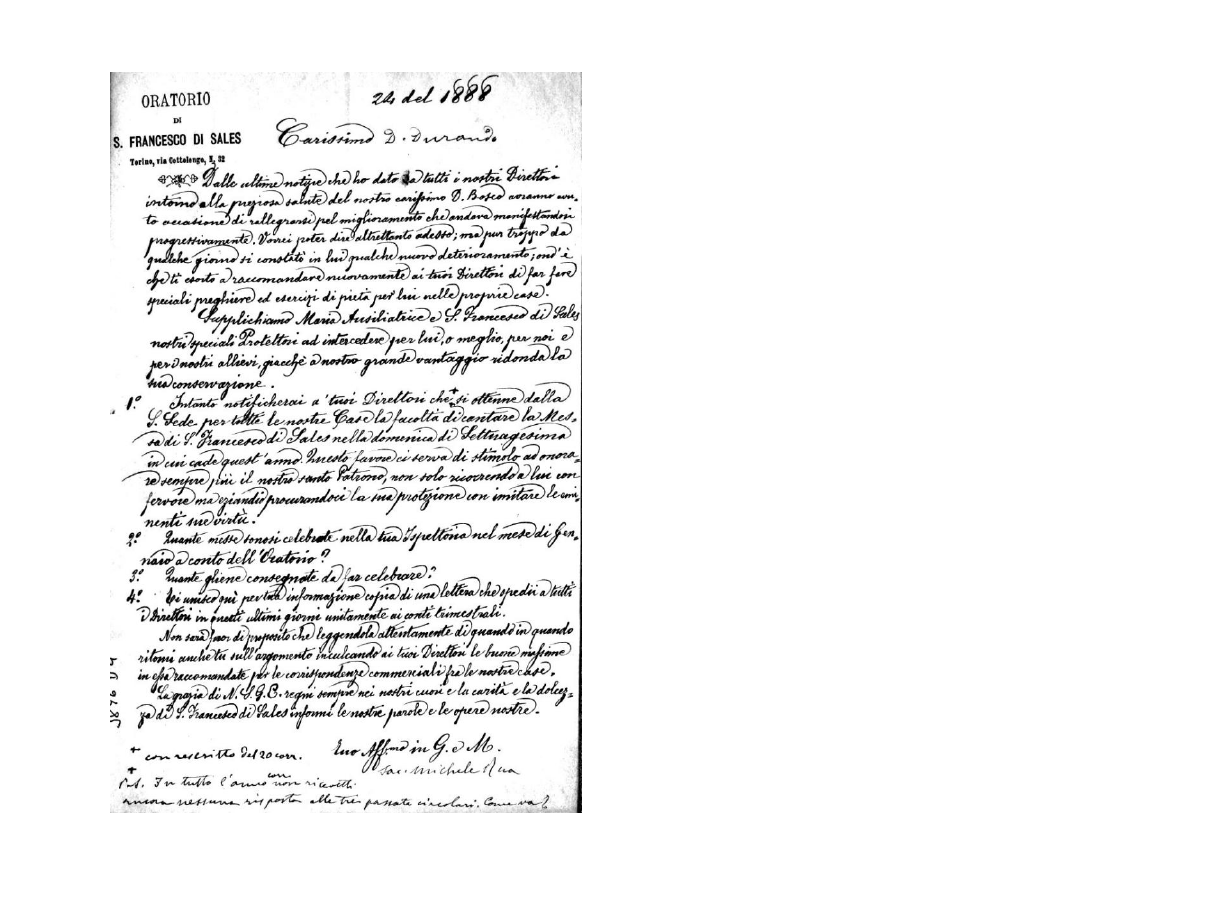 ORATORIO
DI
S. FRANCESCO DI SALES
Torino, via Cottolengo, N. 32
24 del 1888
Carissimo D. Durando
Dalle ultime notizie che ho dato a tutti i nostri Direttori
intorno alla preziosa salute del nostro carissimo D. Bosco avranno avu-
to occasione di rallegrarsi pel miglioramento che andava manifestandosi
progressivamente. Vorrei poter dire altrettanto adesso; ma pur troppo da
qualche giorno si constatò in lui qualche nuovo deterioramento; ond'è
che ti esorto a raccomandare nuovamente ai tuoi Direttori di far fare
speciali preghiere ed esercizi di pietà per lui nelle proprie case.
Supplichiamo Maria Ausiliatrice e S. Francesco di Sales
nostri speciali Protettori ad intercedere per lui, o meglio, per noi e
per i nostri allievi, giacchè a nostro grande vantaggio ridonda la
sua conservazione.
1.° Intanto notificherai a' tuoi Direttori che + si ottenne dalla
S. Sede per tutte le nostre Case la facoltà di cantare la Mes-
sa di S. Francesco di Sales nella domenica di Settuagesima
in cui cade quest'anno. Questo favore ci serva di stimolo ad onora-
re sempre più il nostro santo Patrono, non solo ricorrendo a lui con
fervore ma eziandio procurandoci la sua protezione con imitare le emi-
nenti sue virtù.
2.° Quante messe sonosi celebrate nella tua Ispettoria nel mese di Gen-
naio a conto dell'Oratorio?
3.° Quante gliene consegnate da far celebrare?
4.° Ti unisco quì per tua informazione copia di una lettera che spedii a tutti
i Direttori in questi ultimi giorni unitamente ai conti trimestrali.
Non sarà fuor di proposito che leggendola attentamente di quando in quando
ritorni anche tu sull'argomento inculcando ai tuoi Direttori le buone massime
in essa raccomandate per le corrispondenze commerciali fra le nostre case.
La grazia di N. S. G. C. regni sempre nei nostri cuori e la carità e la dolcez-
za di S. Francesco di Sales informi le nostre parole e le opere nostre.
Tuo Aff.mo in G. e M.
Sac. Michele Rua
+ con rescritto del 20 corr.
+
P.S. In tutto l'anno corr. non ricevetti
ancora nessuna risposta alle tre passate circolari. Come va?